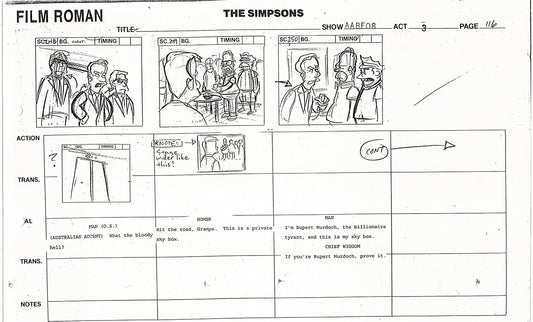 FILM ROMAN
THE SIMPSONS
TITLE
SHOW AABF08 ACT 3 PAGE 116
SC. 248 BG. TIMING
SC. 249 BG. TIMING
SC. 250 BG. TIMING
ACTION
SC. BG. TIMING
?
NOTE:
like
this!
CONT
TRANS.
AL
MAN (O.S.)
(AUSTRALIAN ACCENT) What the bloody
hell?
HOMER
Hit the road, Gramps. This is a private
sky box.
MAN
I'm Rupert Murdoch, the billionaire
tyrant, and this is my sky box.
CHIEF WIGGUM
If you're Rupert Murdoch, prove it.
TRANS.
NOTES